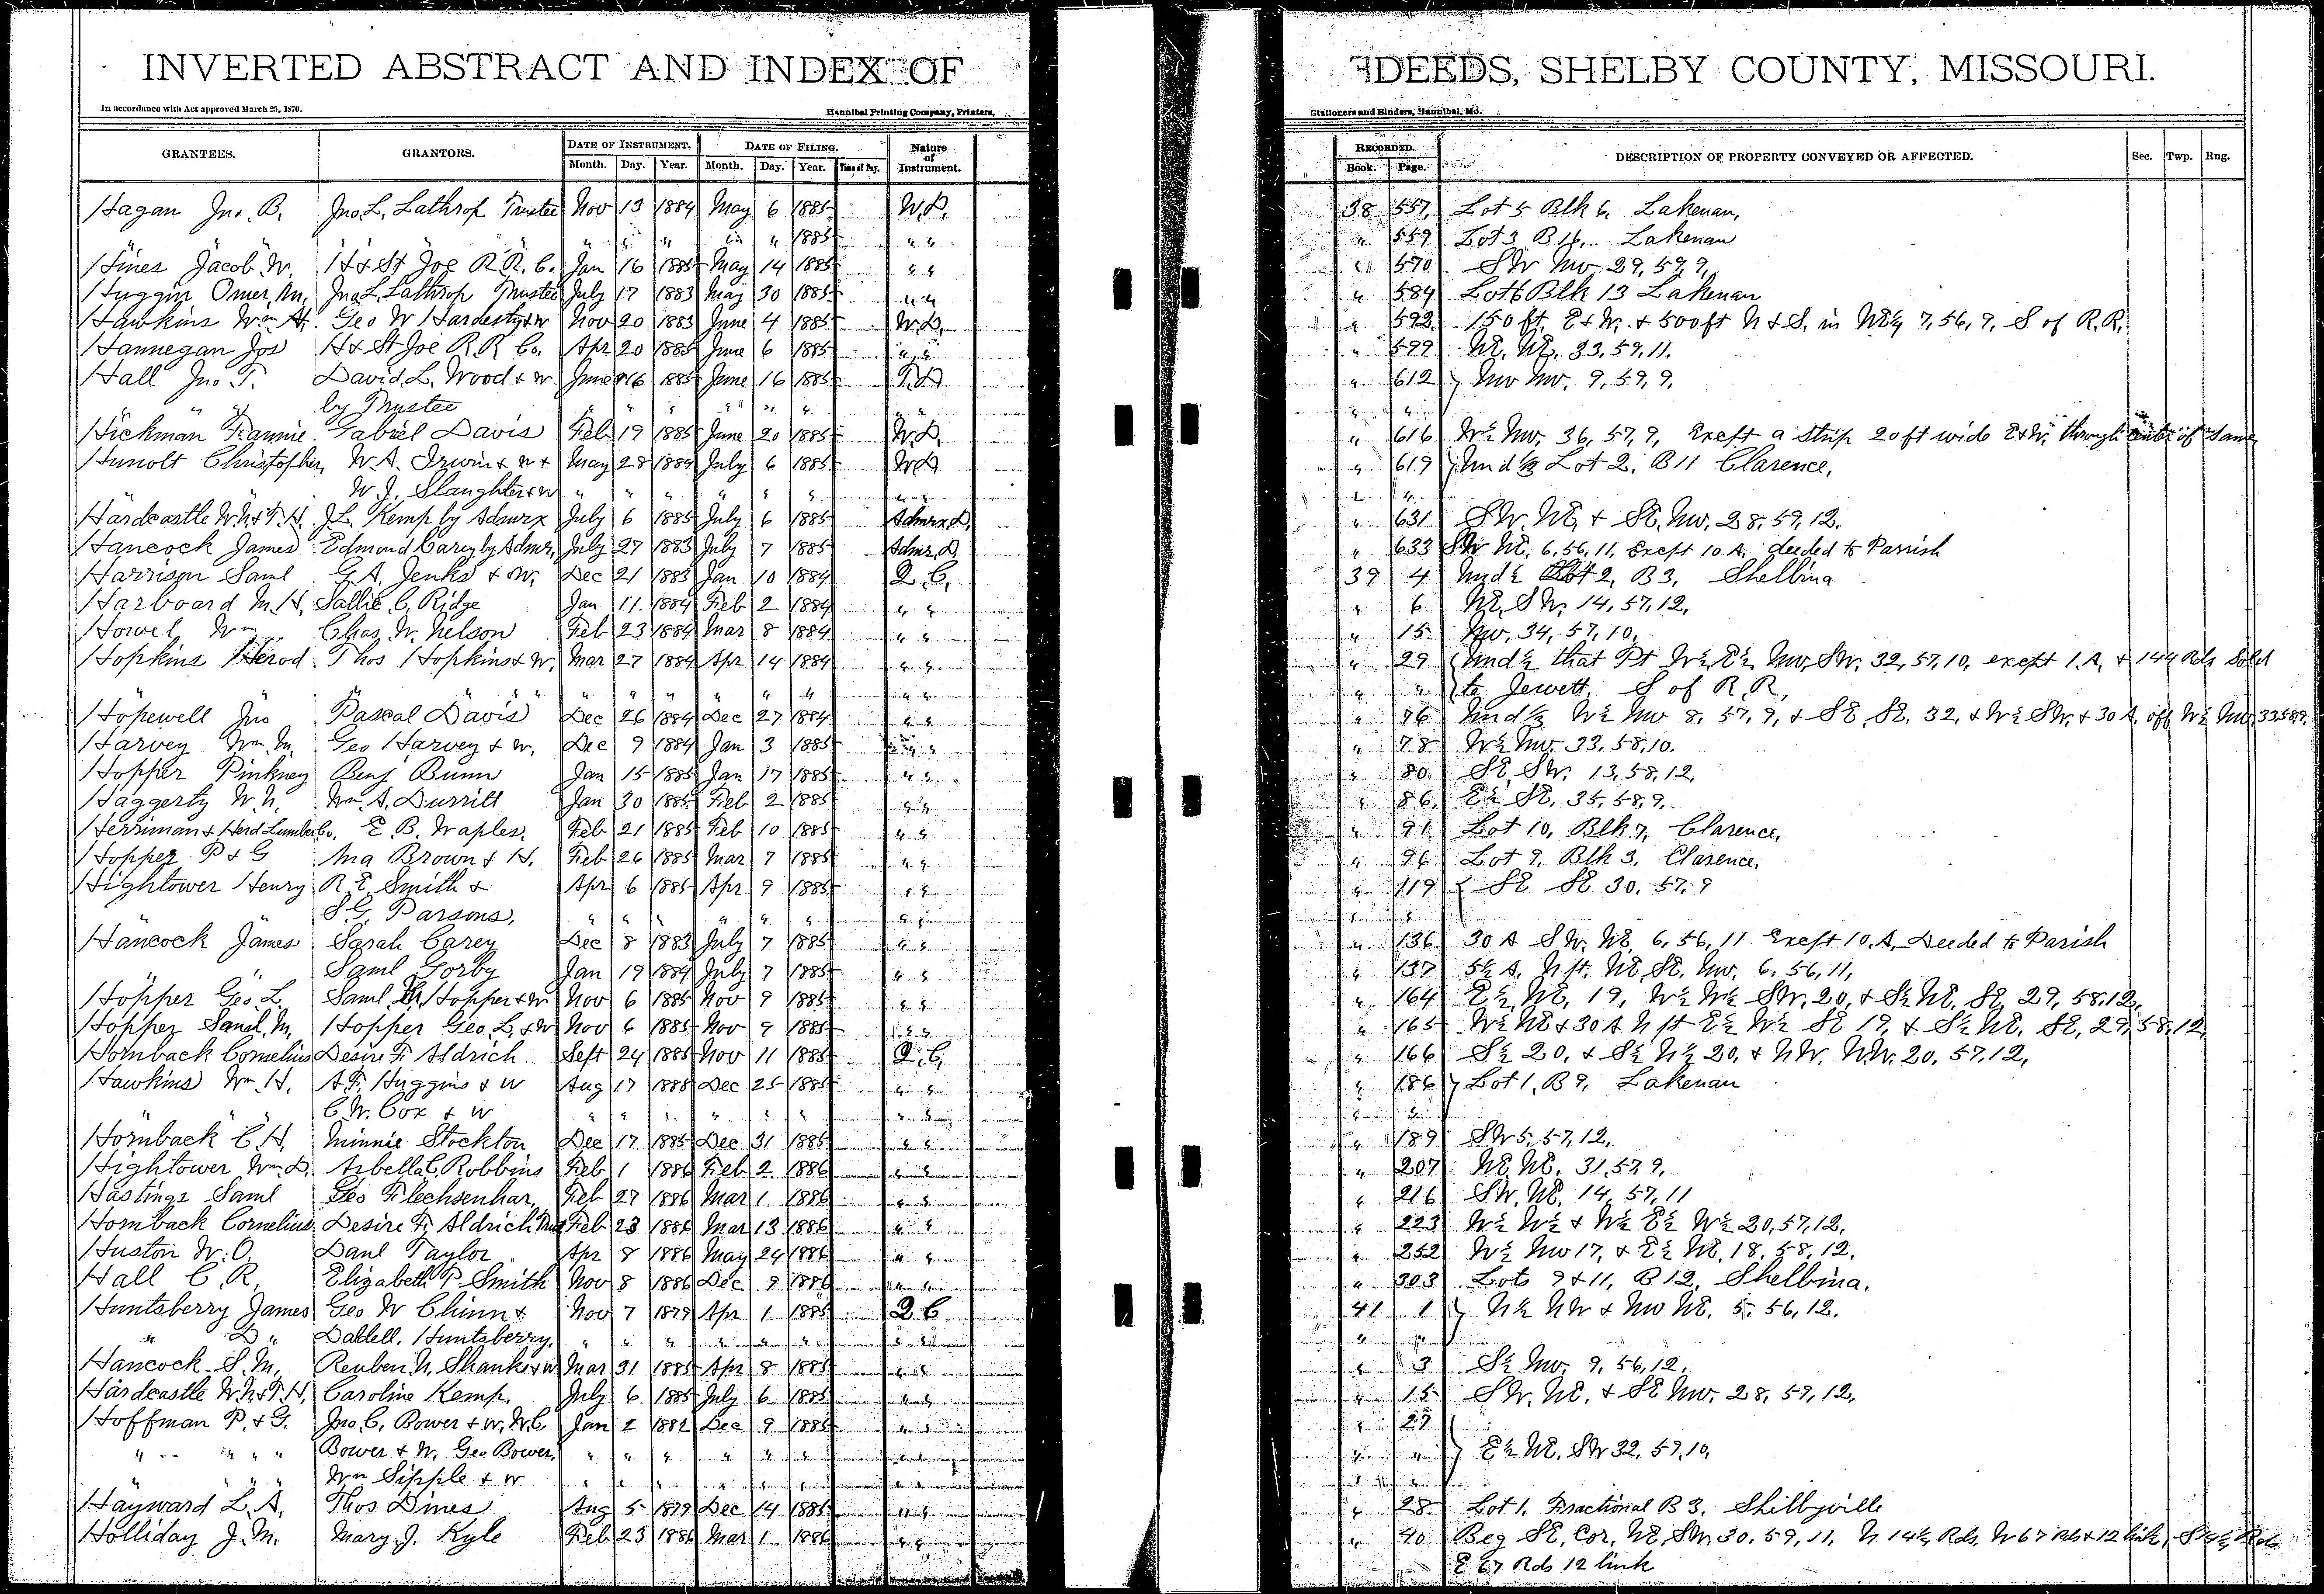 INVERTED ABSTRACT AND INDEX OF DEEDS, SHELBY COUNTY, MISSOURI.
In accordance with Act approved March 25, 1870. Hannibal Printing Company, Printers, Stationers and Binders, Hannibal, Mo.
GRANTEES. GRANTORS. DATE OF INSTRUMENT. DATE OF FILING. Nature of Instrument. RECORDED. DESCRIPTION OF PROPERTY CONVEYED OR AFFECTED. Sec. Twp. Rng.
Month. Day. Year. Month. Day. Year. Time of Day. Book. Page.
Hagan Jno. B. Jno. L. Lathrop Trustee Nov 13 1884 May 6 1885 W.D. 38 557 Lot 5 Blk 6, Lakenan,
" " " " " 1885 " " " 559 Lot 3 B 16, Lakenan
Hines Jacob W. H & St Joe R.R. Co. Jan 16 1885 May 14 1885 " " " 570 SW NW 29, 59, 9,
Huggin Omer M. Jno. L. Lathrop Trustee July 17 1883 May 30 1885 " " " 584 Lot 6 Blk 13 Lakenan
Hawkins Wm H. Geo W Hardesty & w Nov 20 1883 June 4 1885 W.D. " 592 150 ft. E & W. & 500 ft N & S. in NE¼ 7, 56, 9, S of R.R.
Hannegan Jos H & St Joe R R Co. Apr 20 1885 June 6 1885 " " " 599 NE. NE. 33, 59, 11.
Hall Jno. T. David L. Wood & w June 16 1885 June 16 1885 T.D " 612 NW NW. 9, 59, 9,
" " " by Trustee " " " " " " " " " "
Hickman Fannie Gabriel Davis Feb 19 1885 June 20 1885 W.D. " 616 W½ NW. 36, 57, 9, Except a strip 20 ft wide E & W. through center of Same
Hunolt Christopher, W. A. Irwin & w & May 28 1884 July 6 1885 W.D " 619 Und ⅓ Lot 2. B 11 Clarence,
W. J. Slaughter & w " " " " " " " " " "
Hardcastle W.N. & F.H. J.L. Kemp by Admrx July 6 1885 July 6 1885 Admrx D. " 631 SW. NE, & SE. NW. 28, 59, 12.
Hancock James Edmond Carey by Admr, July 27 1883 July 7 1885 Admr. D. " 633 SW NE, 6, 56, 11, Except 10 A. deeded to Parrish
Harrison Saml G. A. Jenks & W. Dec 21 1883 Jan 10 1884 Q.C. 39 4 Und ½ Lot 2, B 3, Shelbina
Harboard M. H. Sallie C. Ridge Jan 11 1884 Feb 2 1884 " " " 6 NE, SW, 14, 57, 12,
Howel Wm Chas. W. Nelson Feb 23 1884 Mar 8 1884 " " " 15 NW, 34, 57, 10,
Hopkins Herod Thos Hopkins & W. Mar 27 1884 Apr 14 1884 " " " 29 Und ½ that Pt W½ E½ NW SW. 32, 57, 10, except 1 A, & 144 Rds Sold
" " " " " " " " " " to Jewett, S of R.R,
Hopewell Jno Pascal Davis Dec 26 1884 Dec 27 1884 " " " 76 Und ⅓ W½ NW 8, 57, 9, & SE, SE. 32, & W½ SW. & 30 A. off W½ NW 33, 58, 9.
Harvey Wm. M. Geo Harvey & w. Dec 9 1884 Jan 3 1885 " " " 78 W½ NW. 33, 58, 10.
Hopper Pinkney Benj Bunn Jan 15 1885 Jan 17 1885 " " " 80 SE, SW. 13, 58, 12,
Haggerty W. N. Wm. A. Durrill Jan 30 1885 Feb 2 1885 " " " 86 E½ SE, 35, 58, 9,
Herriman & Herd Lumber Co. E. B. Waples. Feb 21 1885 Feb 10 1885 " " " 91 Lot 10, Blk 7, Clarence,
Hopper P & G Ina Brown & H. Feb 26 1885 Mar 7 1885 " " " 96 Lot 9, Blk 3, Clarence,
Hightower Henry R. E. Smith & Apr 6 1885 Apr 9 1885 " " " 119 SE SE 30, 57, 9
S. G. Parsons, " " " " " " " " " "
Hancock James Sarah Carey Dec 8 1883 July 7 1885 " " " 136 30 A SW. NE, 6, 56, 11 Except 10. A, Deeded to Parish
" Saml Gorby Jan 19 1884 July 7 1885 " " " 137 5½ A. N pt. NE SE. NW. 6, 56, 11,
Hopper Geo L Saml M. Hopper & w Nov 6 1885 Nov 9 1885 " " " 164 E½ NE, 19, W½ W½ SW, 20, & S½ NE, SE, 29, 58, 12,
Hopper Saml. M. Hopper Geo. L. & w Nov 6 1885 Nov 9 1885 " " " 165 W½ NE & 30 A N pt E½ W½ SE 19, & S½ NE. SE, 29, 58, 12,
Hornback Cornelius Desire F. Aldrich Sept 24 1885 Nov 11 1885 Q.C. " 166 S½ 20, & S½ N½ 20, & NW. NW. 20, 57, 12,
Hawkins Wm. H. A. F. Huggins & w Aug 17 1885 Dec 25 1885 " " " 186 Lot 1, B 9, Lakenan
C. W. Cox & w " " " " " " " " " "
Hornback C. H. Minnie Stockton Dec 17 1885 Dec 31 1885 " " " 189 SW 5, 57, 12,
Hightower Wm. D. Arbella C. Robbins Feb 1 1886 Feb 2 1886 " " " 207 NE NE, 31, 57, 9,
Hastings Saml Geo Flechsenhar, Feb 27 1886 Mar 1 1886 " " " 216 SW. NE, 14, 57, 11
Hornback Cornelius Desire F. Aldrich Feb 23 1886 Mar 13 1886 " " " 223 W½ W½ & W½ E½ W½ 20, 57, 12,
Huston W. O. Danl Taylor Apr 8 1886 May 24 1886 " " " 252 W½ NW 17, & E½ NE, 18, 58, 12,
Hall C. R. Elizabeth P. Smith Nov 8 1886 Dec 9 1886 " " " 303 Lots 9 & 11, B 12, Shelbina,
Huntsberry James Geo W Chinn & Nov 7 1879 Apr 1 1885 Q C 41 1 N½ NW & NW NE. 5, 56, 12.
" D " Huntsberry, " " " " " " " " " "
Hancock S. M. Reuben N. Shanks & w Mar 31 1885 Apr 8 1885 " " " 3 S½ NW. 9, 56, 12,
Hardcastle W.N. & F.H. Caroline Kemp. July 6 1885 July 6 1885 " " " 15 SW. NE, & SE NW. 28, 59, 12,
Hoffman P. & G. Jno. C. Bower & w, W. C. Jan 2 1882 Dec 9 1885 " " " 27
" " " " Bower & W, Geo Bower, " " " " " " " " " " E½ NE, SW 32, 59, 10,
" " " Wm Sipple & w " " " " " " " " " "
Hayward L. A. Thos Dines Aug 5 1879 Dec 14 1885 " " " 28 Lot 1, Fractional B 3, Shelbyville
Holliday J. M. Mary J. Kyle Feb 23 1886 Mar 1 1886 " " " 40 Beg SE, Cor, NE, SW 30, 59, 11, N 14½ Rds, W 67 Rds & 12 link, S 14½ Rds
E 67 Rds 12 link